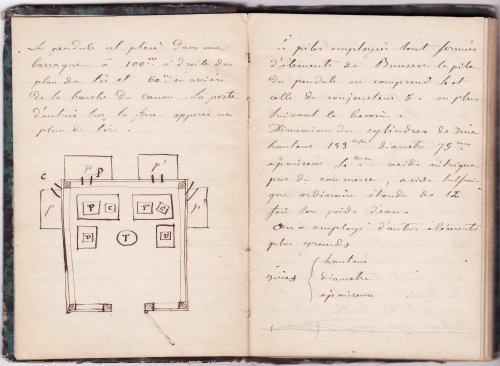 Le pendule est placé dans une
barraque à 100m à droite des
plan de tir et 60m en arrière
de la bouche du canon. La porte
d'entrée sur la face opposée au
plan de tir.
C
p
P
p'
p
p"
P
C
P'
C
P
T
P
Les piles employées sont formées
d'éléments de Bunsen la pile
du pendule en comprend 4 et
celle de conjoncteur 3. ou plus
suivant le besoin.
Dimensions des cylindres de zinc
hauteur diamètre 75mm
épaisseur acide nitrique
pur du commerce, acide sulfuri-
que ordinaire étendu de 12
fois son poids d'eau.
On a employé d'autres éléments
plus grands
zincs { hauteur
diamètre
épaisseur